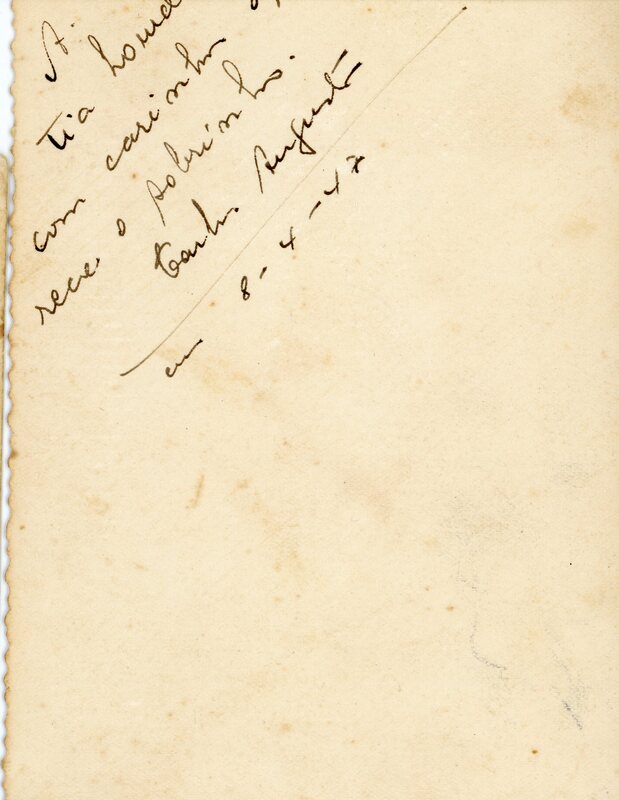 A
tia
com carinho
rece o sobrinho.
Carlos Augusto
em 8-4-47